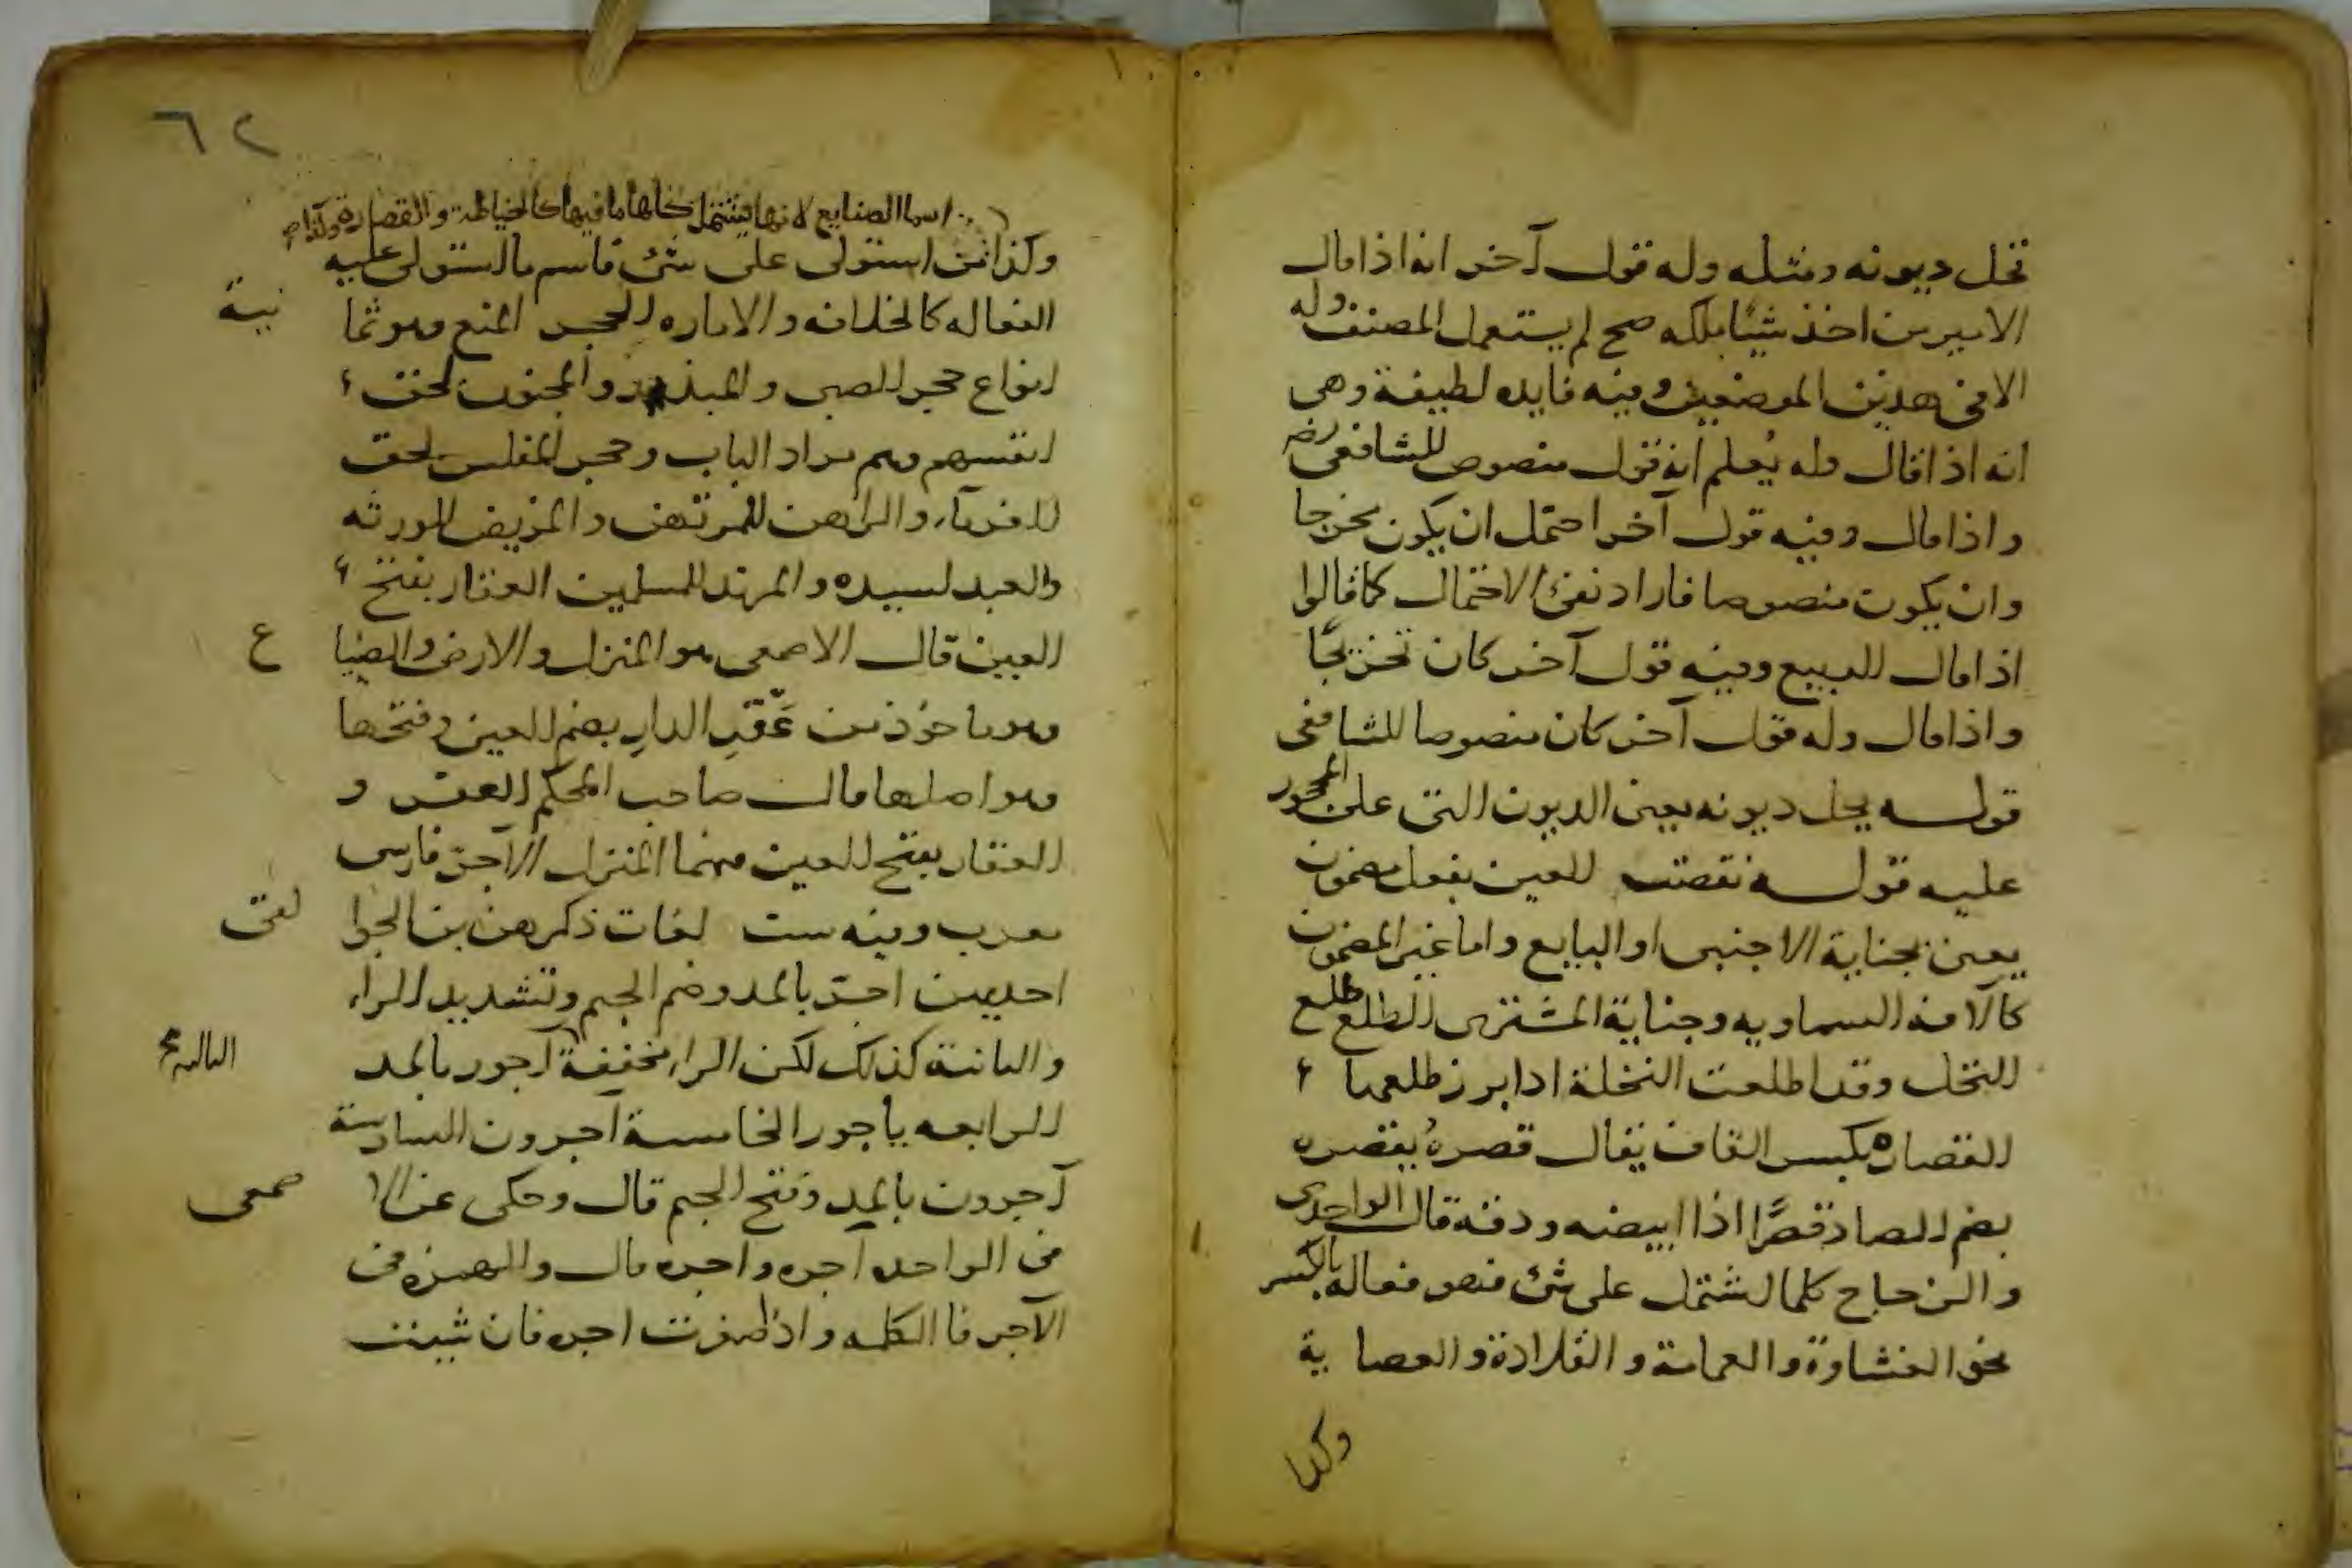 تحل ديونه ومثله وله قول آخر انه اذا قال
الاسير من اخذ شيئا ملكه صح لم يستعمل المصنف وله
الا في هذين الموضعين وفيه فايده لطيفة وهي
انه اذا قال وله يُعلم انه قول منصوص للشافعي رضه
واذا قال وفيه قول آخر احتمل ان يكون مخرجا
وان يكون منصوصا فاراد نفي الاحتمال كما قالوا
اذا قال للبيع وفيه قول آخر كان تخريجًا
واذا قال وله قول آخر كان منصوصا للشافعي
قوله يحل ديونه يعني الديون التي على المحجور
عليه قوله نقصت العين بفعل مضمون
يعني بجناية الاجنبي او البايع واما غير المضمون
كالآفه السماويه وجناية المشتري الطلع طلع
النخل وقد اطلعت النخلة اذا ابرز طلعها
القصاره بكسر القاف يقال قصرهُ يقصره
بضم الصاد قصرًا اذا ابيضه ودقه قال الواحدي
والزجاج كلما اشتمل على شئ فهو فعاله بالكسر
نحو الغشاوة والعمامة والقلادة والعصا بة
وكذا
٦٢
اسما الصنايع لانها يشتمل كلها ما فيها كالخياطة والقصارة
وكذا من استولى على شئ فاسم ما استولى عليه
الفعاله كالخلافه والاماره الحجر المنع وهو ثما نية
انواع حجر الصبي والمبذر والمجنون لحق
انفسهم وهم مراد الباب وحجر المفلس لحق
الغرماء والراهن للمرتهن والمريض للورثه
والعبد لسيده والمرتد للمسلمين العقار بفتح
العين قال الاصمعي هو المنزل والارض والضيا ع
وهو ماخوذ من عَقْرِ الدارِ بضم العين وفتحها
وهو اصلها قال صاحب المحكم العقر و
العقار بفتح العين فيهما المنزل الآجر فارسى
معرب وفيه ست لغات ذكرهن بن الجوا لقى
احديهن آجرّ بالمد وضم الجيم وتشديد الراء
والثانية كذلك لكن الراء مخففة آجور بالمد الثالثة
الرابعه ياجور الخامسة آجرون السادسة
آجرون بالمد وفتح الجيم قال وحكى عن الا صمعى
في الواحد آجره واجره قال والهمزه في
الآجر فا الكلمه واذ اصغرت اجره فان شينت